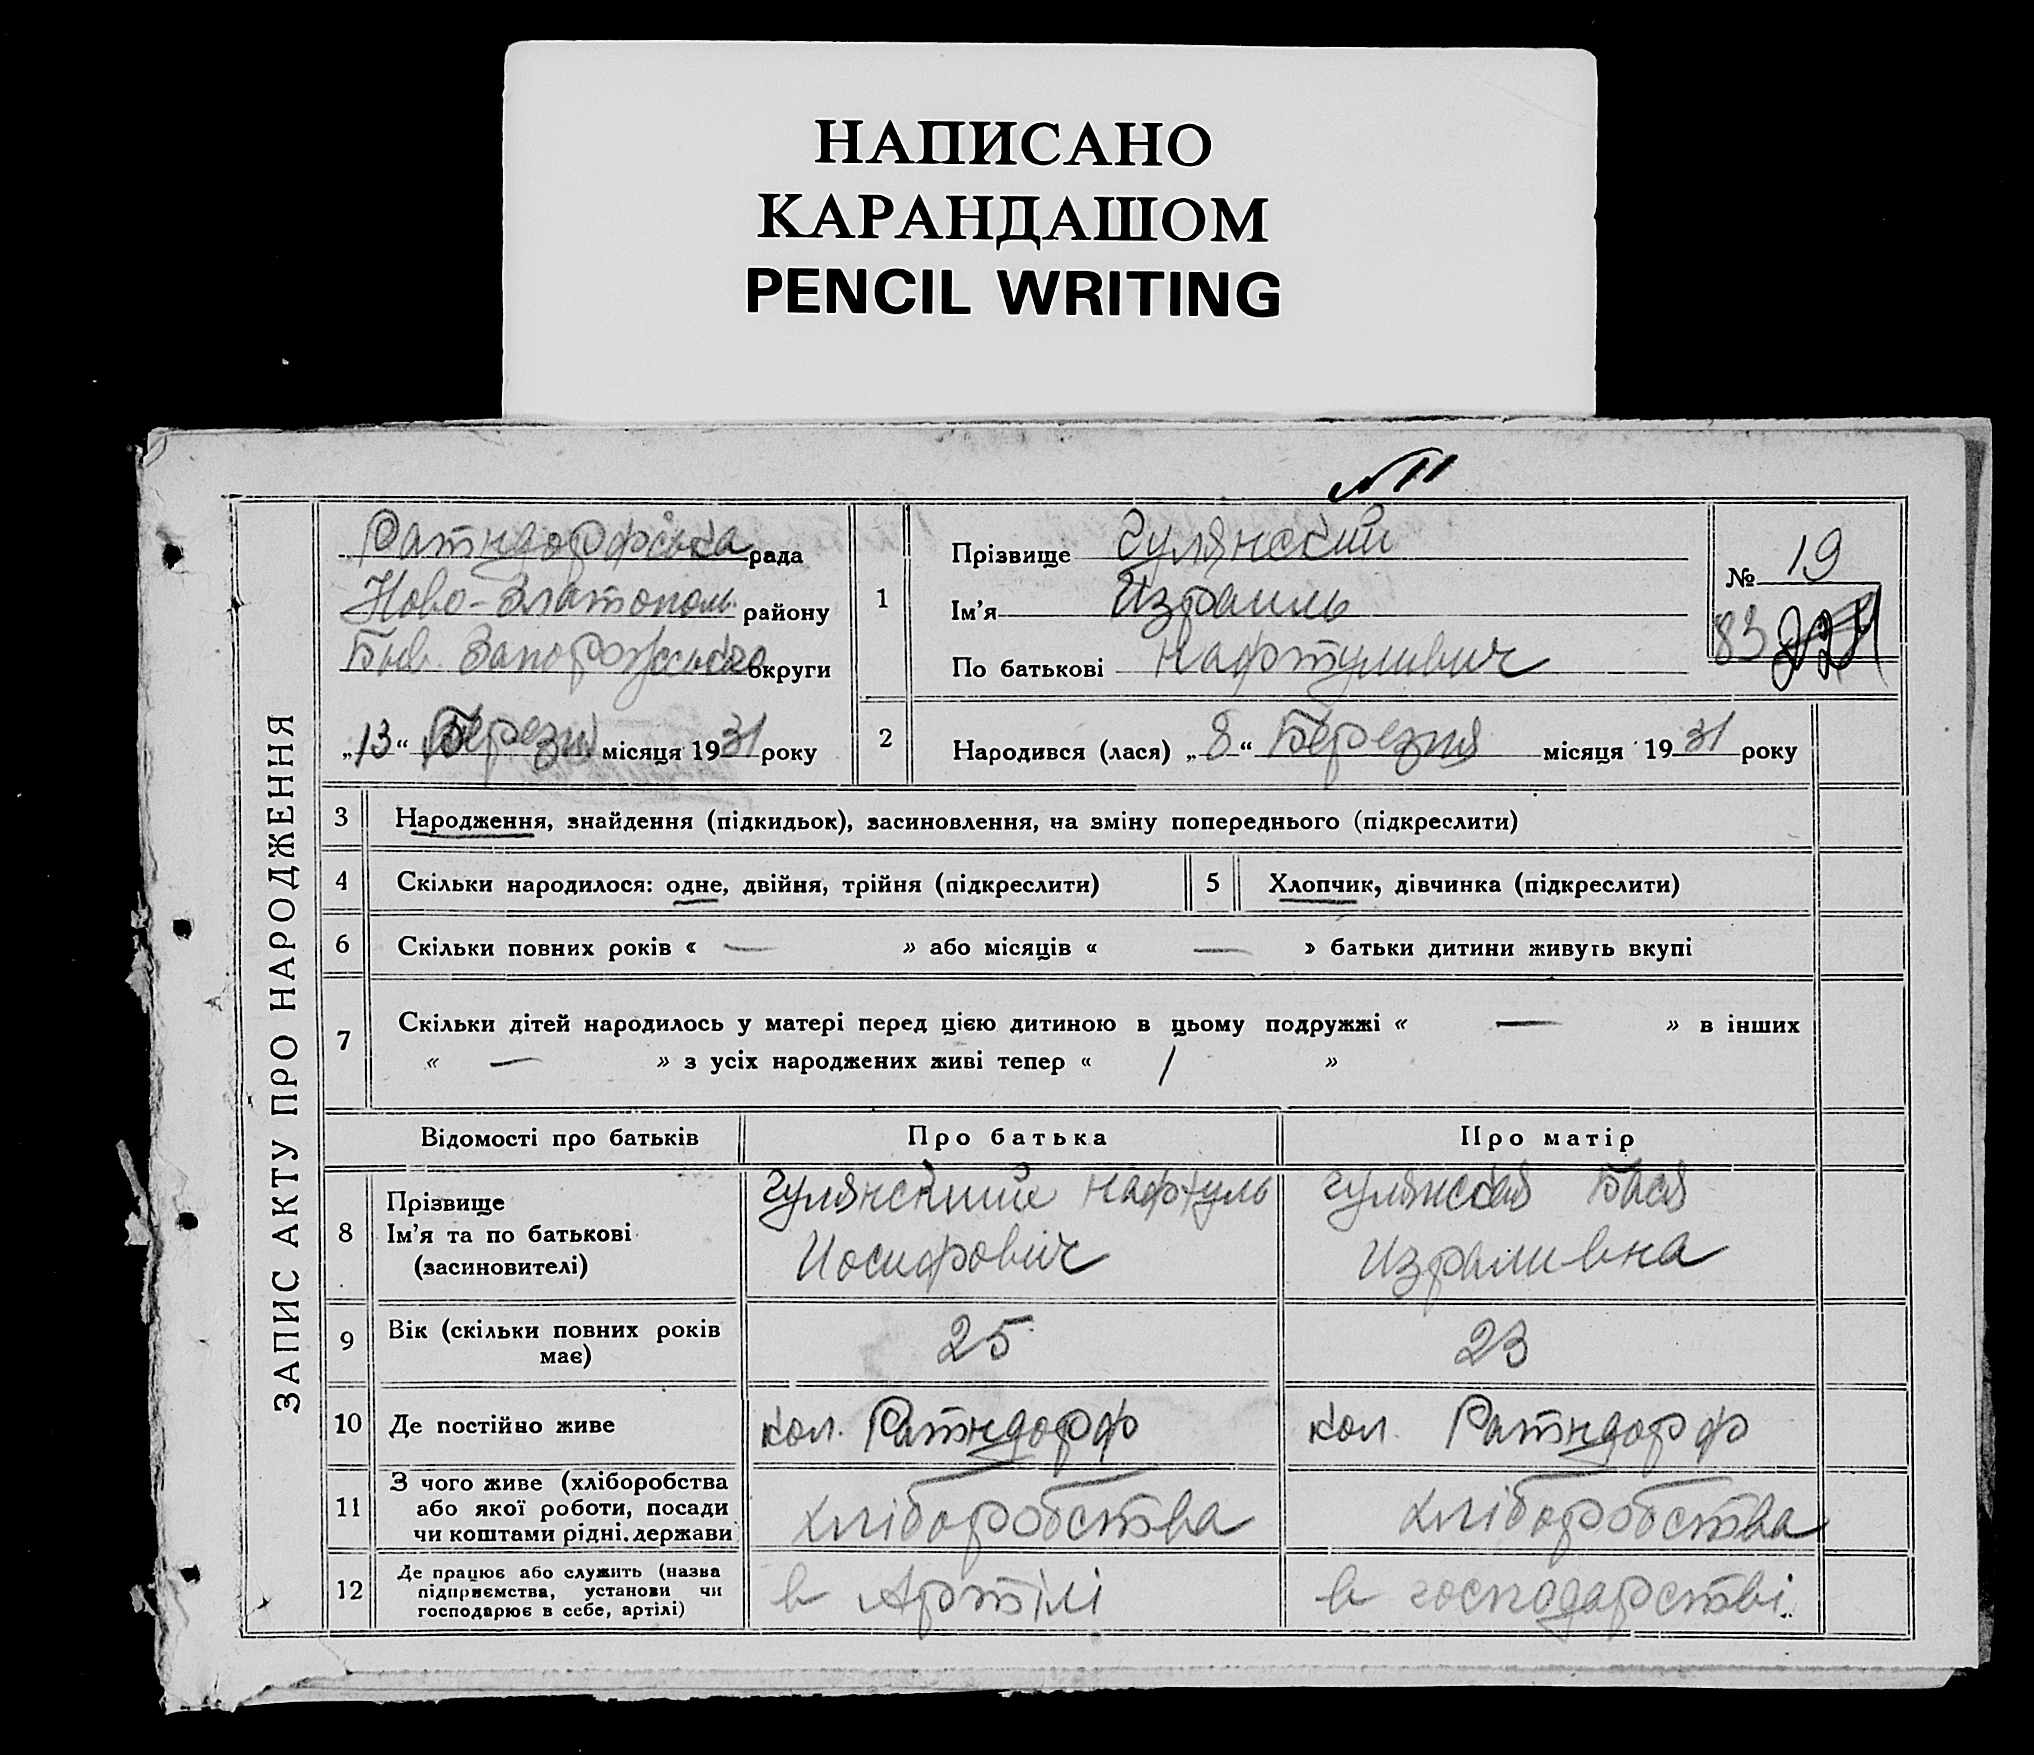 НАПИСАНО
КАРАНДАШОМ
PENCIL WRITING
№ 11
ЗАПИС АКТУ ПРО НАРОДЖЕННЯ
Ратндорфська рада
Ново-Златопол. району
Бив. Запорожського округи
„13“ Березня місяця 1931 року
1
Прізвище Гулянский
Ім’я Израиль
По батькові Нафтуливич
№ 19
83
2
Народився (лася) „8“ Березня місяця 1931 року
3 Народження, знайдення (підкидьок), засиновлення, на зміну попереднього (підкреслити)
4 Скільки народилося: одне, двійня, трійня (підкреслити) 5 Хлопчик, дівчинка (підкреслити)
6 Скільки повних років « — » або місяців « — » батьки дитини живуть вкупі
7 Скільки дітей народилось у матері перед цією дитиною в цьому подружжі « — » в інших
« — » з усіх народжених живі тепер « 1 »
Відомості про батьків Про батька Про матір
8 Прізвище
Ім’я та по батькові
(засиновителі)
Гулянский Нафтуль
Иосифович
Гулянская Бася
Израиливна
9 Вік (скільки повних років
має)
25 23
10 Де постійно живе кол. Ратндорф кол. Ратндорф
11 З чого живе (хліборобства
або якої роботи, посади
чи коштами рідні.держави
хліборобства хліборобства
12 Де працює або служить (назва
підприємства, установи чи
господарює в себе, артілі)
в Артілі в господарстві